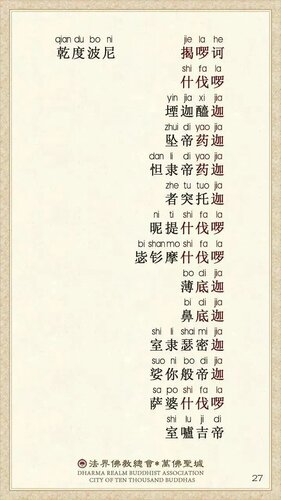 qian du bo ni jie la he
乾度波尼 揭啰诃
shi fa la
什伐啰
yin jia xi jia
堙迦醯迦
zhui di yao jia
坠帝药迦
dan li di yao jia
怛隶帝药迦
zhe tu tuo jia
者突托迦
ni ti shi fa la
昵提什伐啰
bi shan mo shi fa la
毖钐摩什伐啰
bo di jia
薄底迦
bi di jia
鼻底迦
shi li shai mi jia
室隶瑟密迦
suo ni bo di jia
娑你般帝迦
sa po shi fa la
萨婆什伐啰
shi lu ji di
室嚧吉帝
法界佛教總會 萬佛聖城
DHARMA REALM BUDDHIST ASSOCIATION
CITY OF TEN THOUSAND BUDDHAS
27